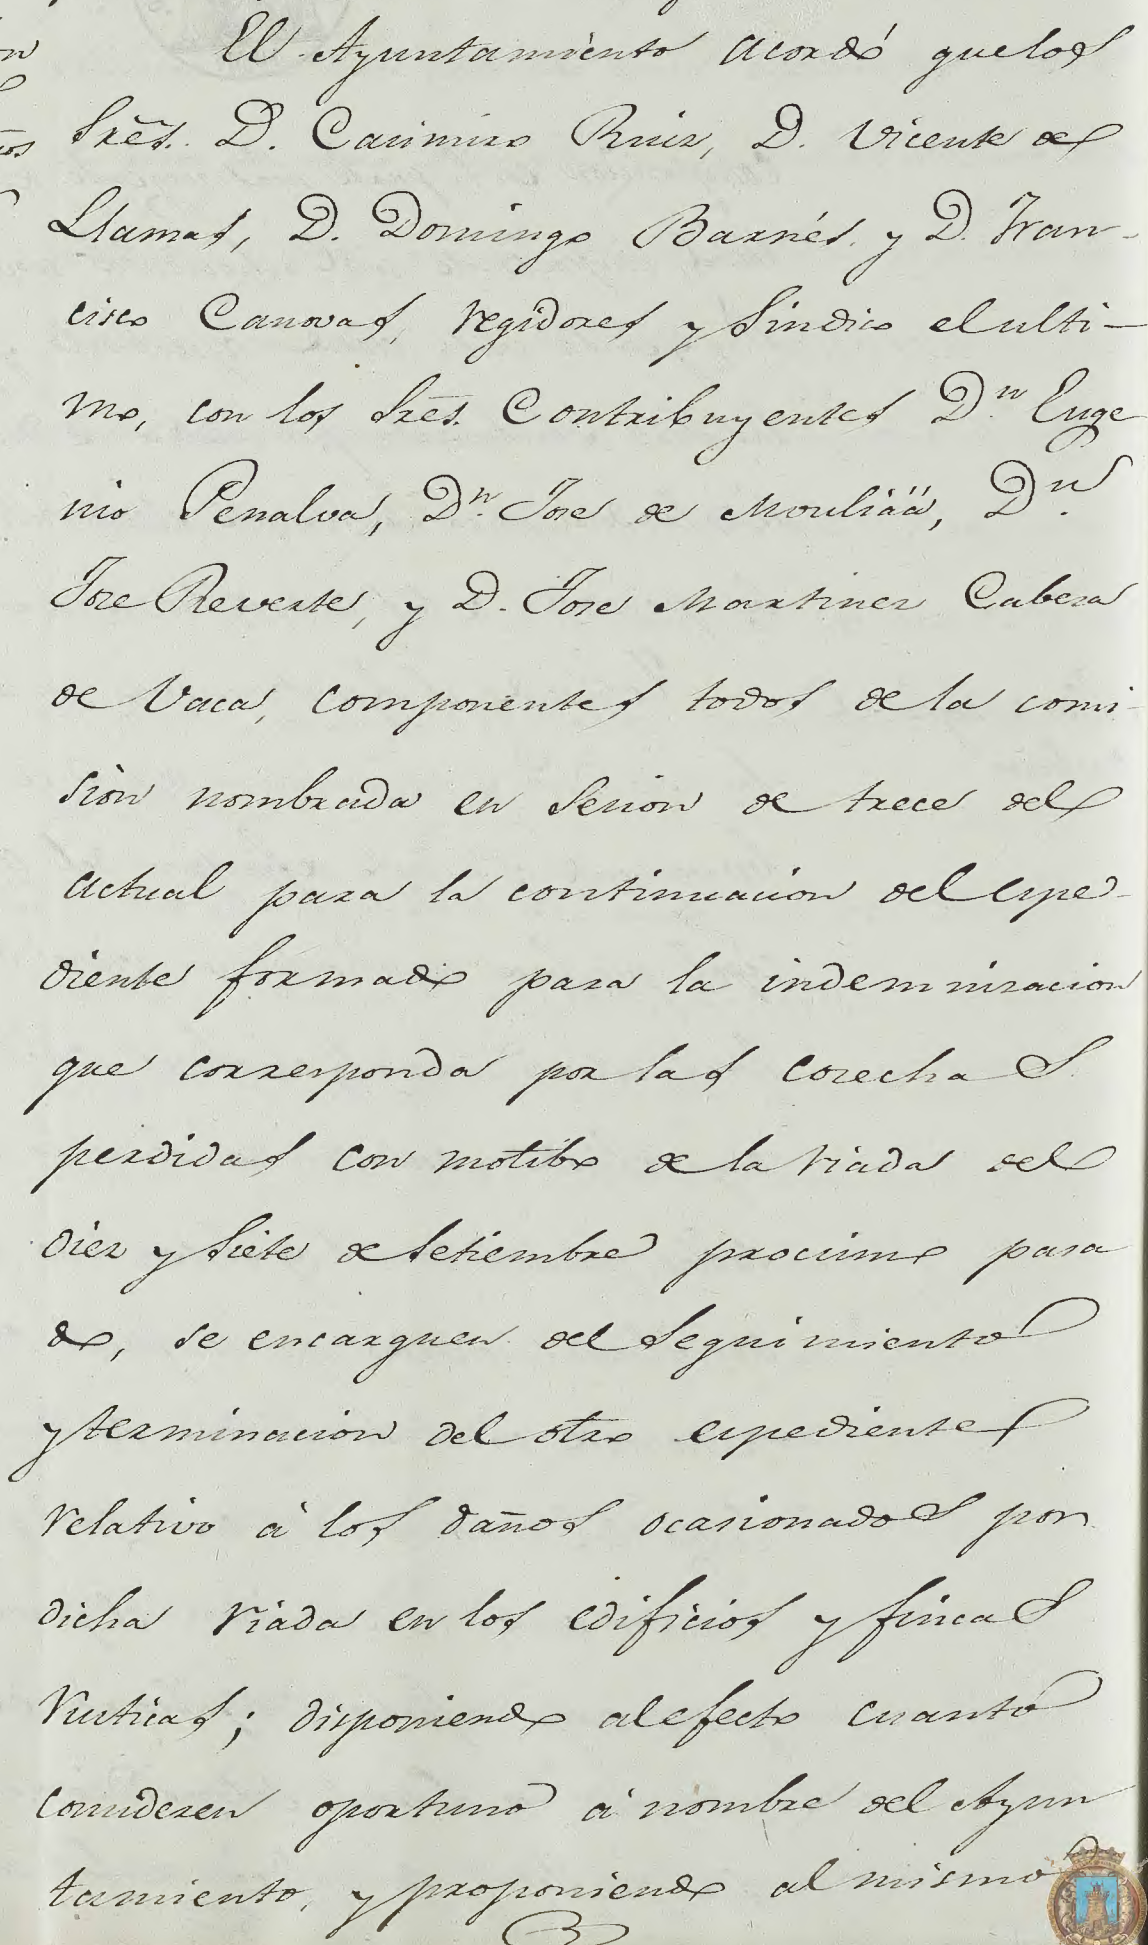 El Ayuntamiento acordó que los
Sres. D. Casimiro Ruiz, D. Vicente de
Llamas, D. Domingo Barnés y D. Fran-
cisco Canovas, regidores y Sindico el ulti-
mo, con los Sres. Contribuyentes Dn Euge
nio Penalva, Dn. Jose de Mouliáá, Dn.
Jose Reverte, y D. Jose Martinez Cabeza
de Vaca, componentes todos de la comi-
sion nombrada en sesion de trece del
actual para la continuacion del espe-
diente formado para la indemnizacion
que corresponda por las cosechas
perdidas con motibo de la riada del
diez y siete de Setiembre procsimo pasa
do, se encarguen del seguimiento
y terminacion del otro espediente
relativo á los daños ocasionados por
dicha riada en los edificios y fincas
rusticas; disponiendo al efecto cuanto
consideren oportuno á nombre del Ayun
tamiento, y proponiendo al mismo